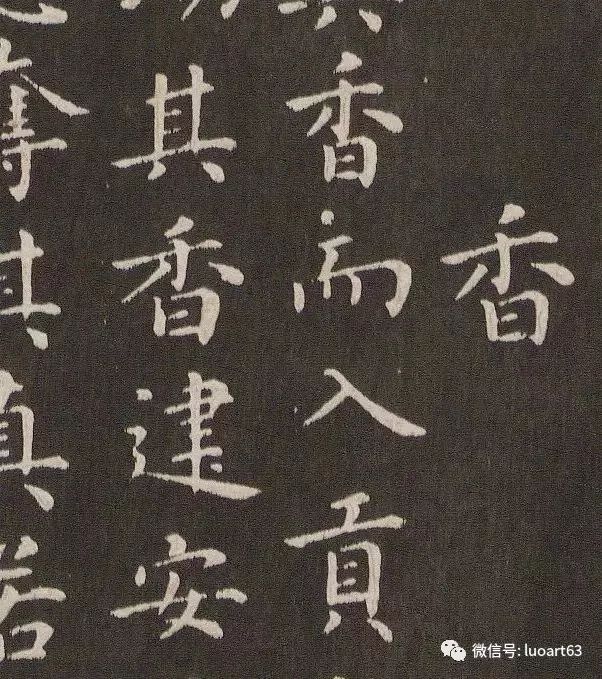 香
香而入貢
其香建安
奪其真若
微信号: luoart63